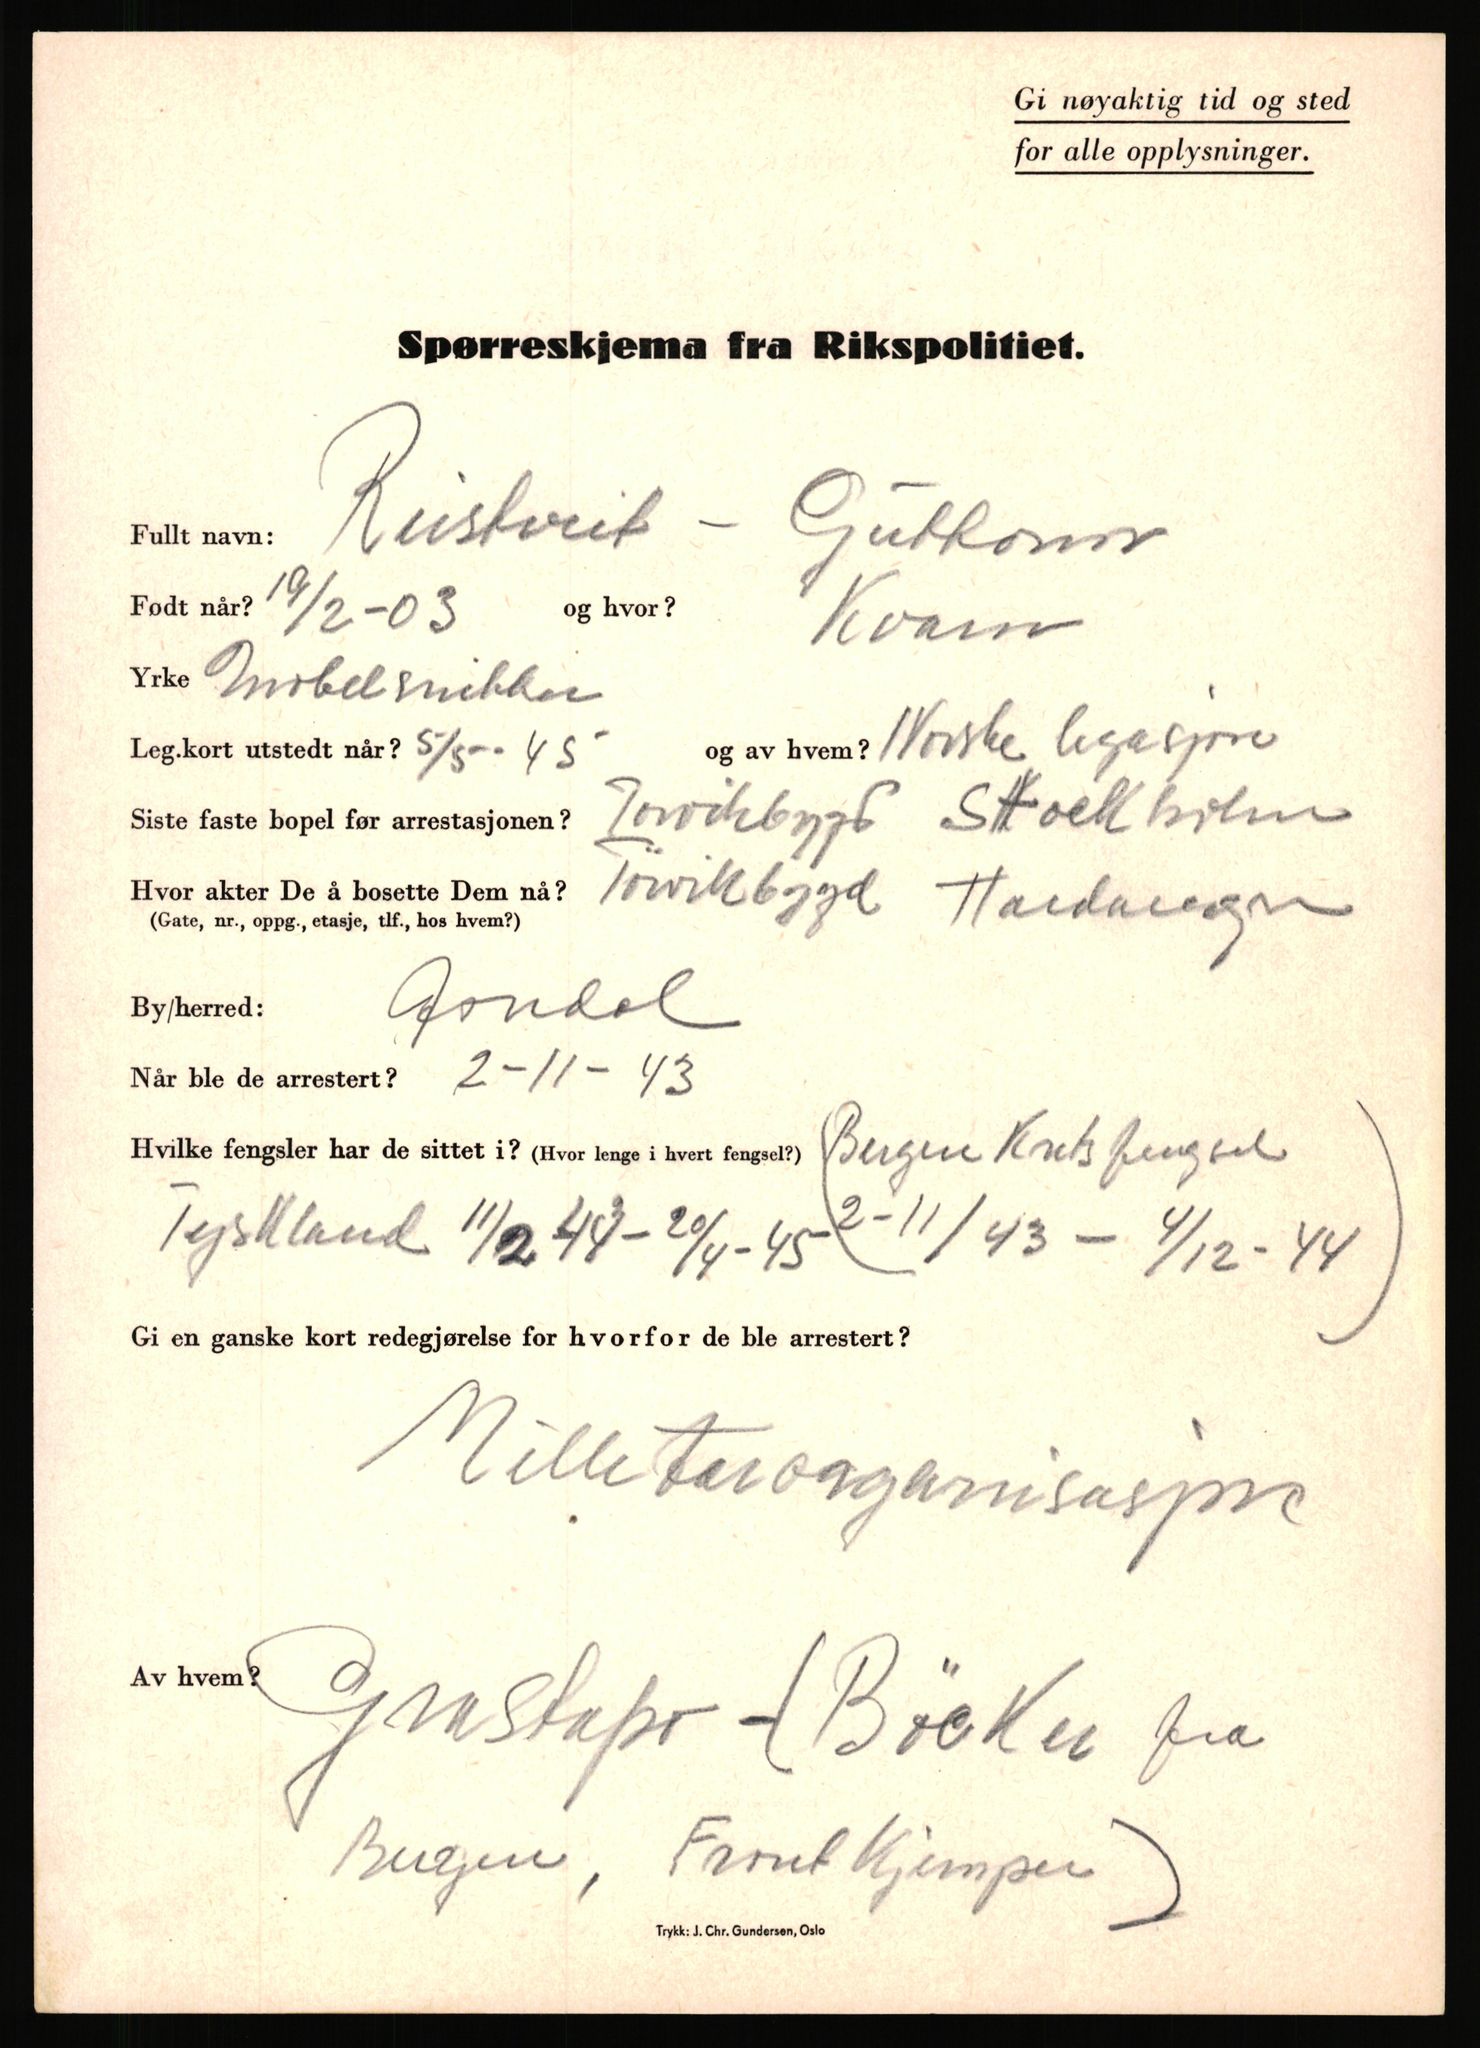 Gi nøyaktig tid og sted
for alle opplysninger.
Spørreskjema fra Rikspolitiet.
Fullt navn: Reistveit - Guttorm
Født når? 19/2-03 og hvor? Kvam
Yrke Møbelsnikker
Leg.kort utstedt når? 5/5-45 og av hvem? Norske legasjon
Siste faste bopel før arrestasjonen? Torvikbygd Stockholm
Hvor akter De å bosette Dem nå? Torvikbygd Hardanger
(Gate, nr., oppg., etasje, tlf., hos hvem?)
By/herred: Jondal
Når ble de arrestert? 2-11-43
Hvilke fengsler har de sittet i? (Hvor lenge i hvert fengsel?) (Bergen Kretsfengsel
Tyskland 11/2 - 20/4-45 2-11/43 - 4/12-44)
Gi en ganske kort redegjørelse for hvorfor de ble arrestert?
Milletærorganisasjon
Av hvem? Gestapo - (Böcker fra
Bergen, Frontkjemper)
Trykk: J. Chr. Gundersen, Oslo